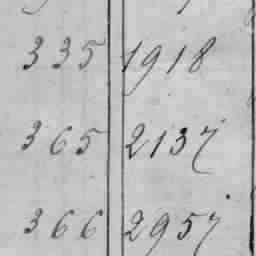 335 1918
365 2137
366 2957